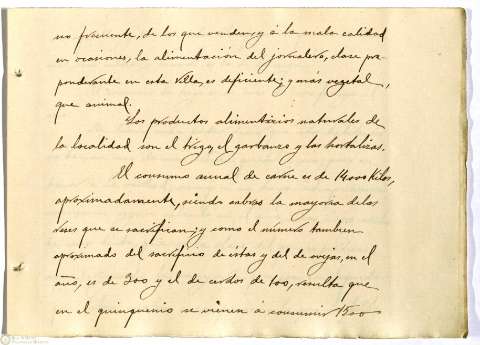 no frecuente, de los que venden, y á la mala calidad
en ocasiones, la alimentación del jornalero, clase pre-
ponderante en esta Villa, es deficiente; y más vegetal,
que animal.
Los productos alimenticios naturales de
la localidad son el trigo, el garbanzo y las hortalizas.
El consumo anual de carne es de 14000 Kilos,
aproximadamente, siendo cabras la mayoria de las
reses que se sacrifican; y como el número tambien
aproximado del sacrificio de éstas y del de ovejas, en el
año, es de 300 y el de cerdos de 100, resulta que
en el quinquenio se vienen á consumir 1500